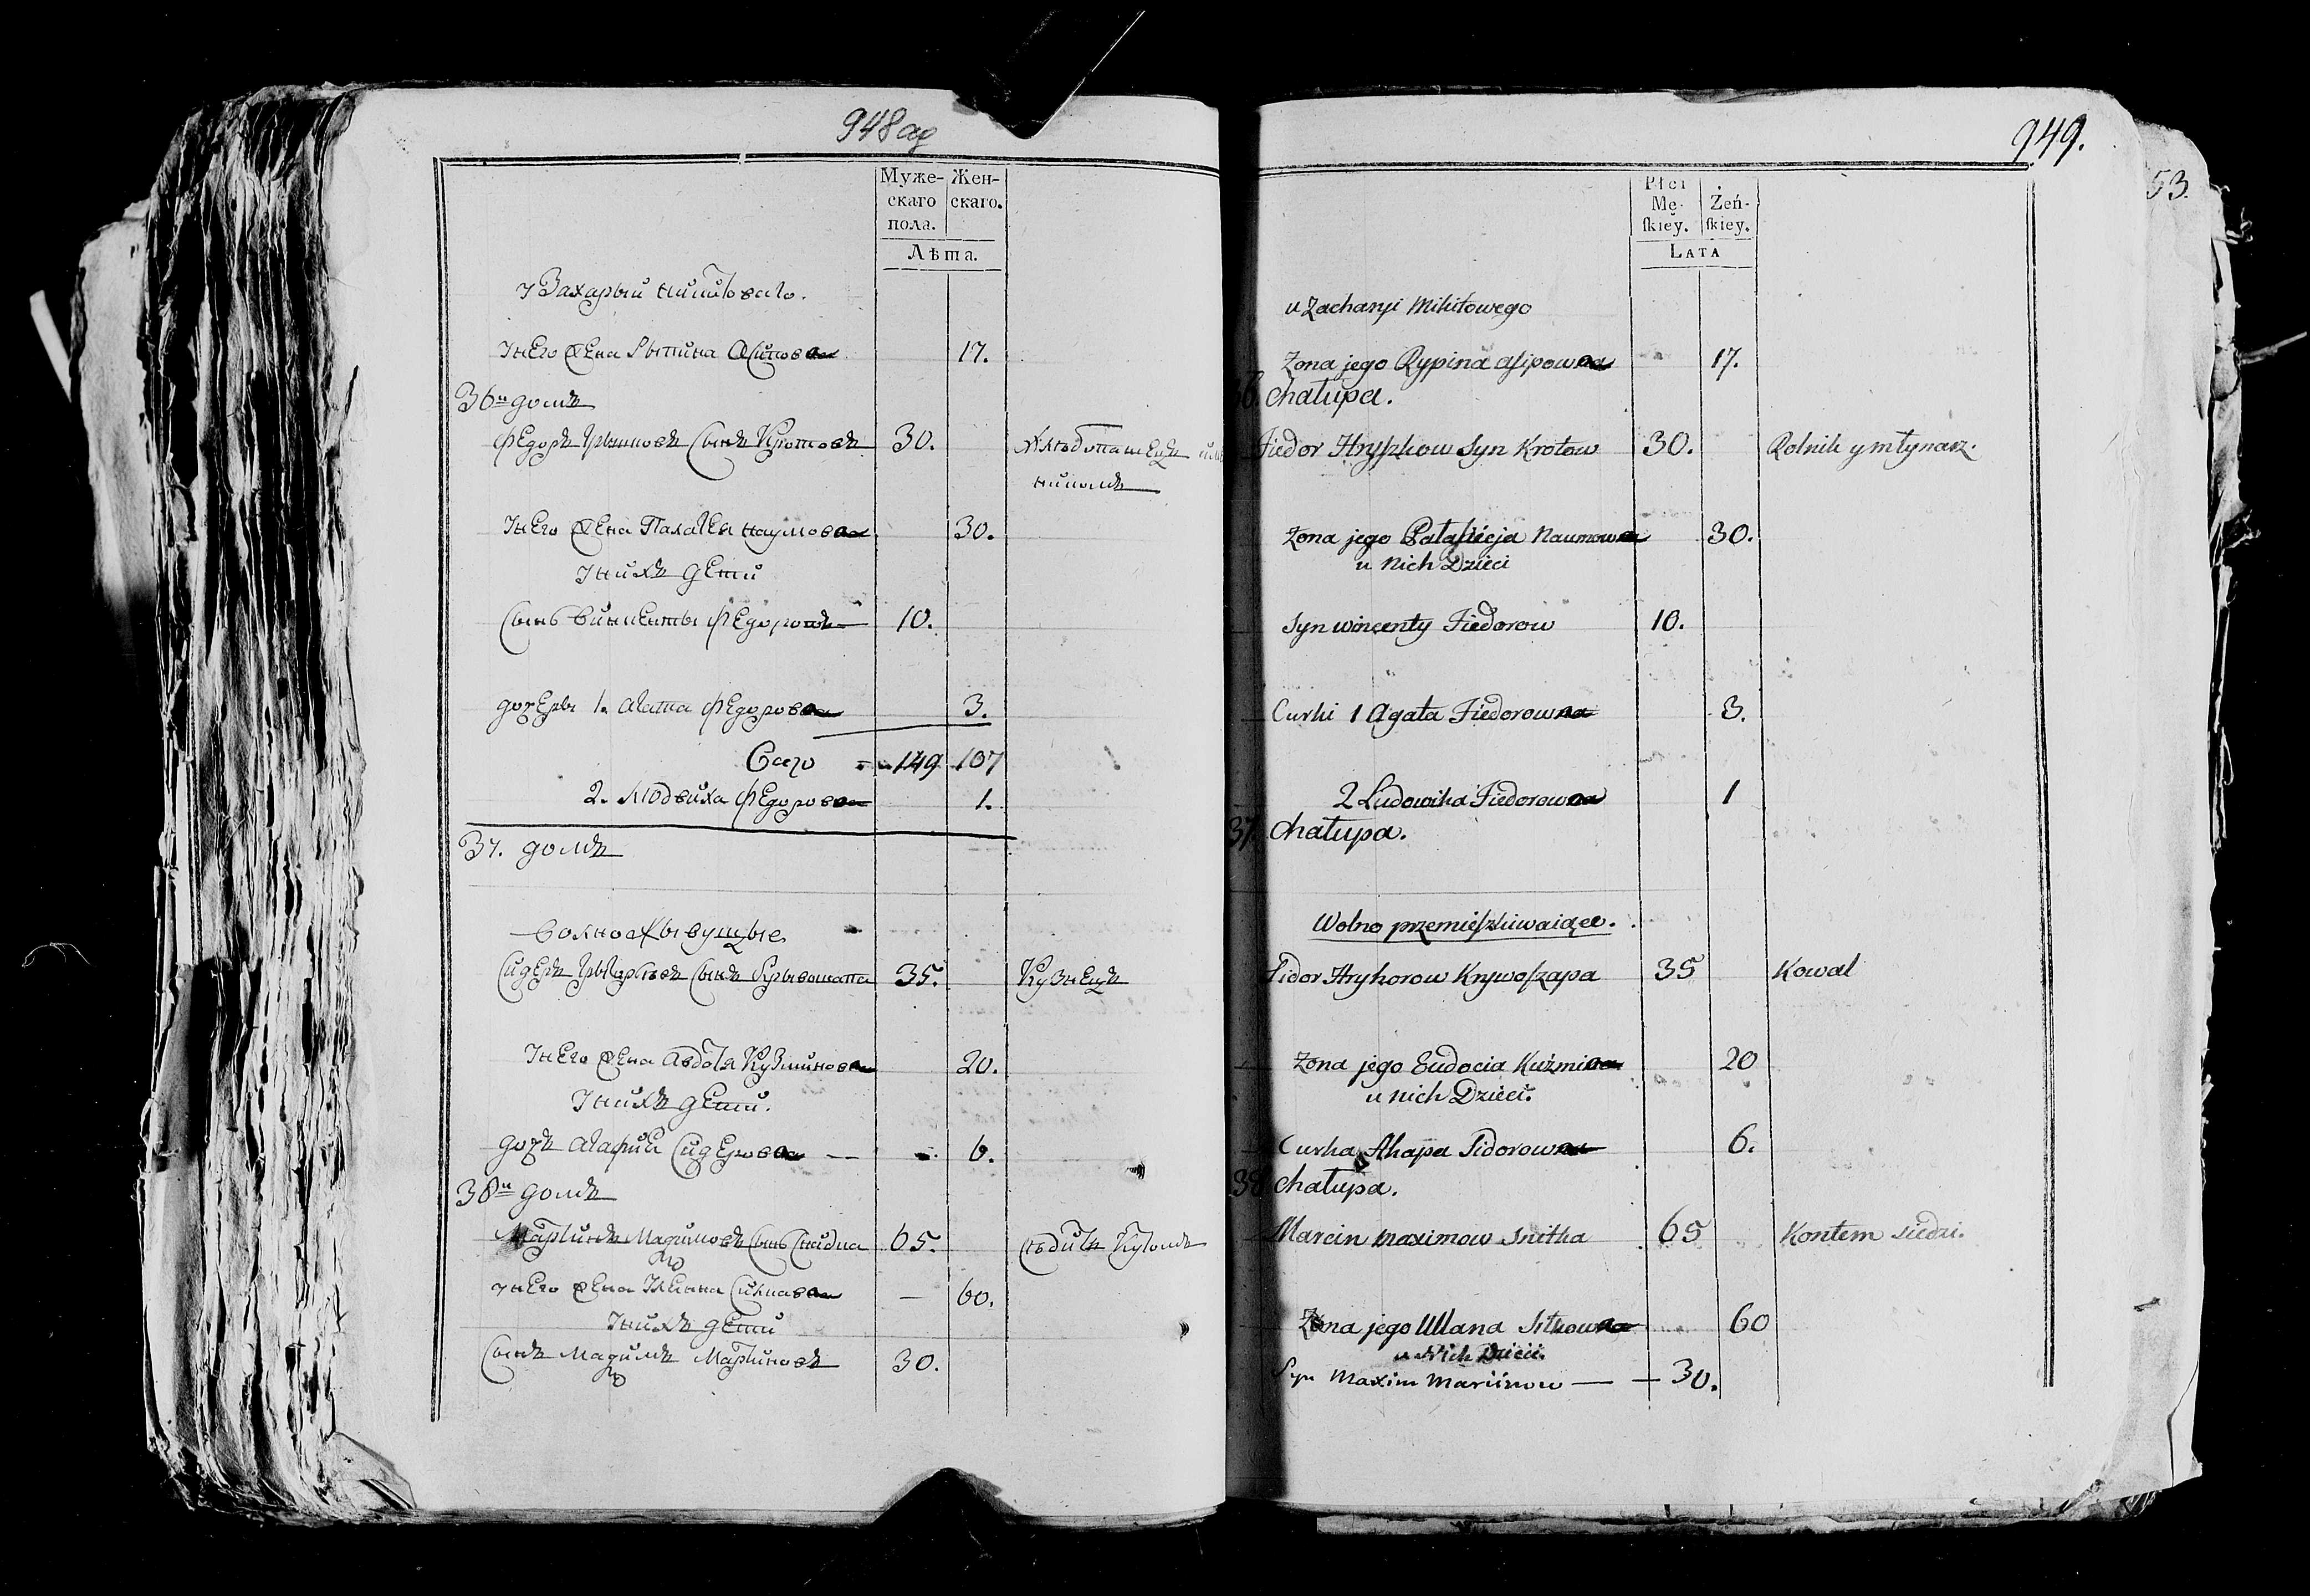 948 об
Муже-
скаго
пола.
Жен-
скаго.
Лѣта.
у Захарыи Микитоваго.
Унего жена Рыпина Асипова 17.
36й домъ
Федоръ Грышковъ сынъ Кротовъ 30. Хлѣбопашецъ
Унего жена Палагея Наумова 30.
Унихъ дети
Сынъ Винценты Федоровъ 10.
дочеры 1. Агата Федорова 3.
Сего 149 107
2. Людвика Федорова 1.
37. домъ
Волножывущые
Сидеръ Грыгорьевъ сынъ Крывошапа 35. Кузнецъ
Унего жена Авдотя Кузминова 20.
Унихъ дети.
дочъ Агафия Сидерова — 6.
38й домъ
Мартинъ Мацимовъ сынъ Снидка 65. Сѣдитъ Кутомъ
Унего жена Улянна — 60.
Унихъ дети
Сынъ Мацимъ Мартиновъ 30.
949.
53.
Płci
Mę-
ſkiey.
Żeń-
ſkiey.
LATA
u Zacharyi Mikitowego
Żona jego Rypina Asipowna 17.
36. Chałupa.
Fiedor Hryszkow Syn Krotow 30. Rolnik y młynarz.
Żona jego Pałaſzieja Naumowna 30.
u Nich Dzieci
Syn Wincenty Fiedorow 10.
Curki 1 Agata Fiedorowna 3.
2 Ludowika Fiedorowna 1
37. Chałupa.
Wolno przemieſzkiwaiące.
Sidor Hryhorow Krywoſzapa 35 Kowal
Żona jego Eudocia Kuźmina 20
u nich Dzieci.
Curka Ahapa Sidorowna 6.
38. Chałupa.
Marcin Maximow Snitka 65 Kontem siedzi.
Żona jego Ullana Sitkowna 60
u Nich Dzieci.
Syn Maxim Marcinow — 30.